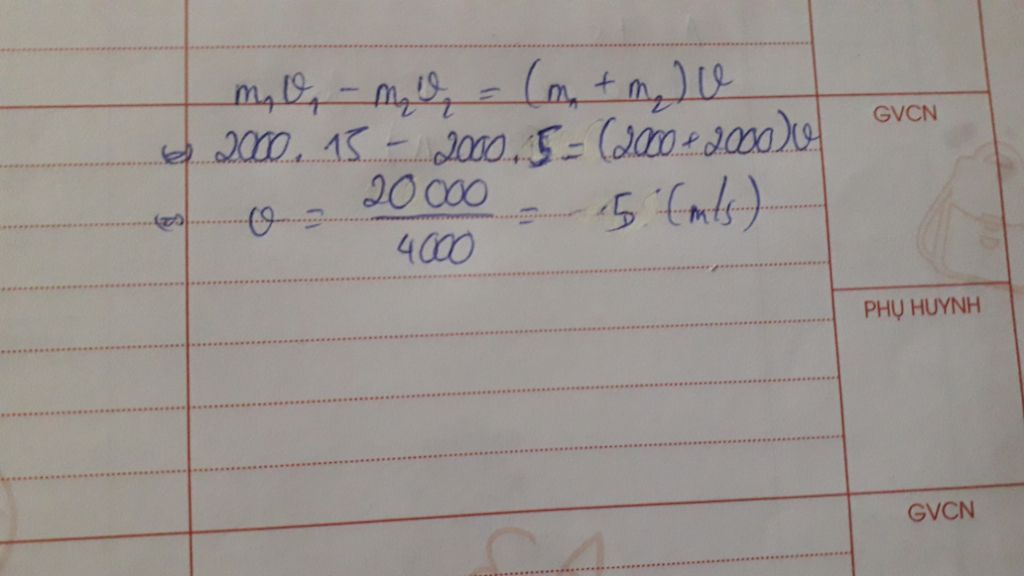 m₁v₁ - m₂v₂ = (m₁ + m₂)v
⇔ 2000. 15 - 2000. 5 = (2000+2000)v
⇔ v = 20000/4000 = 5 (m/s)
GVCN
PHỤ HUYNH
GVCN